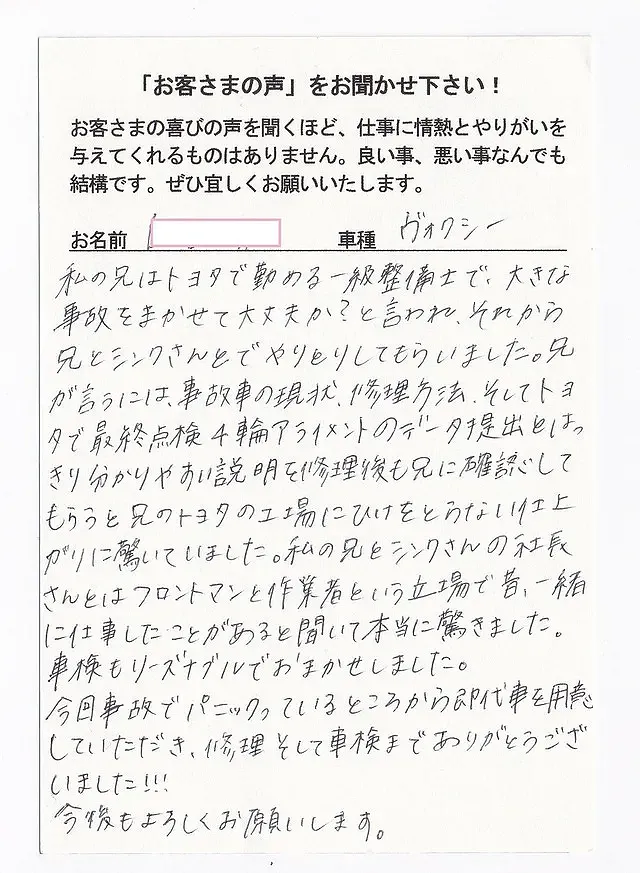 「お客さまの声」をお聞かせ下さい！
お客さまの喜びの声を聞くほど、仕事に情熱とやりがいを
与えてくれるものはありません。良い事、悪い事なんでも
結構です。ぜひ宜しくお願いいたします。
お名前 車種 ヴォクシー
私の兄はトヨタで勤める一級整備士で、大きな
事故をまかせて大丈夫か？と言われ、それから
兄とシンクさんとでやりとりしてもらいました。兄
が言うには、事故車の現状、修理方法、そしてトヨ
タで最終点検4輪アライメントのデータ提出とはっ
きり分かりやすい説明を修理後も兄に確認して
もらうと兄のトヨタの工場にひけをとらない仕上
がりに驚いていました。私の兄とシンクさんの社長
さんとはフロントマンと作業者という立場で昔、一緒
に仕事したことがあると聞いて本当に驚きました。
車検もリーズナブルでおまかせしました。
今回事故でパニックっているところから即代車を用意
していただき、修理そして車検までありがとうござ
いました!!!
今後もよろしくお願いします。